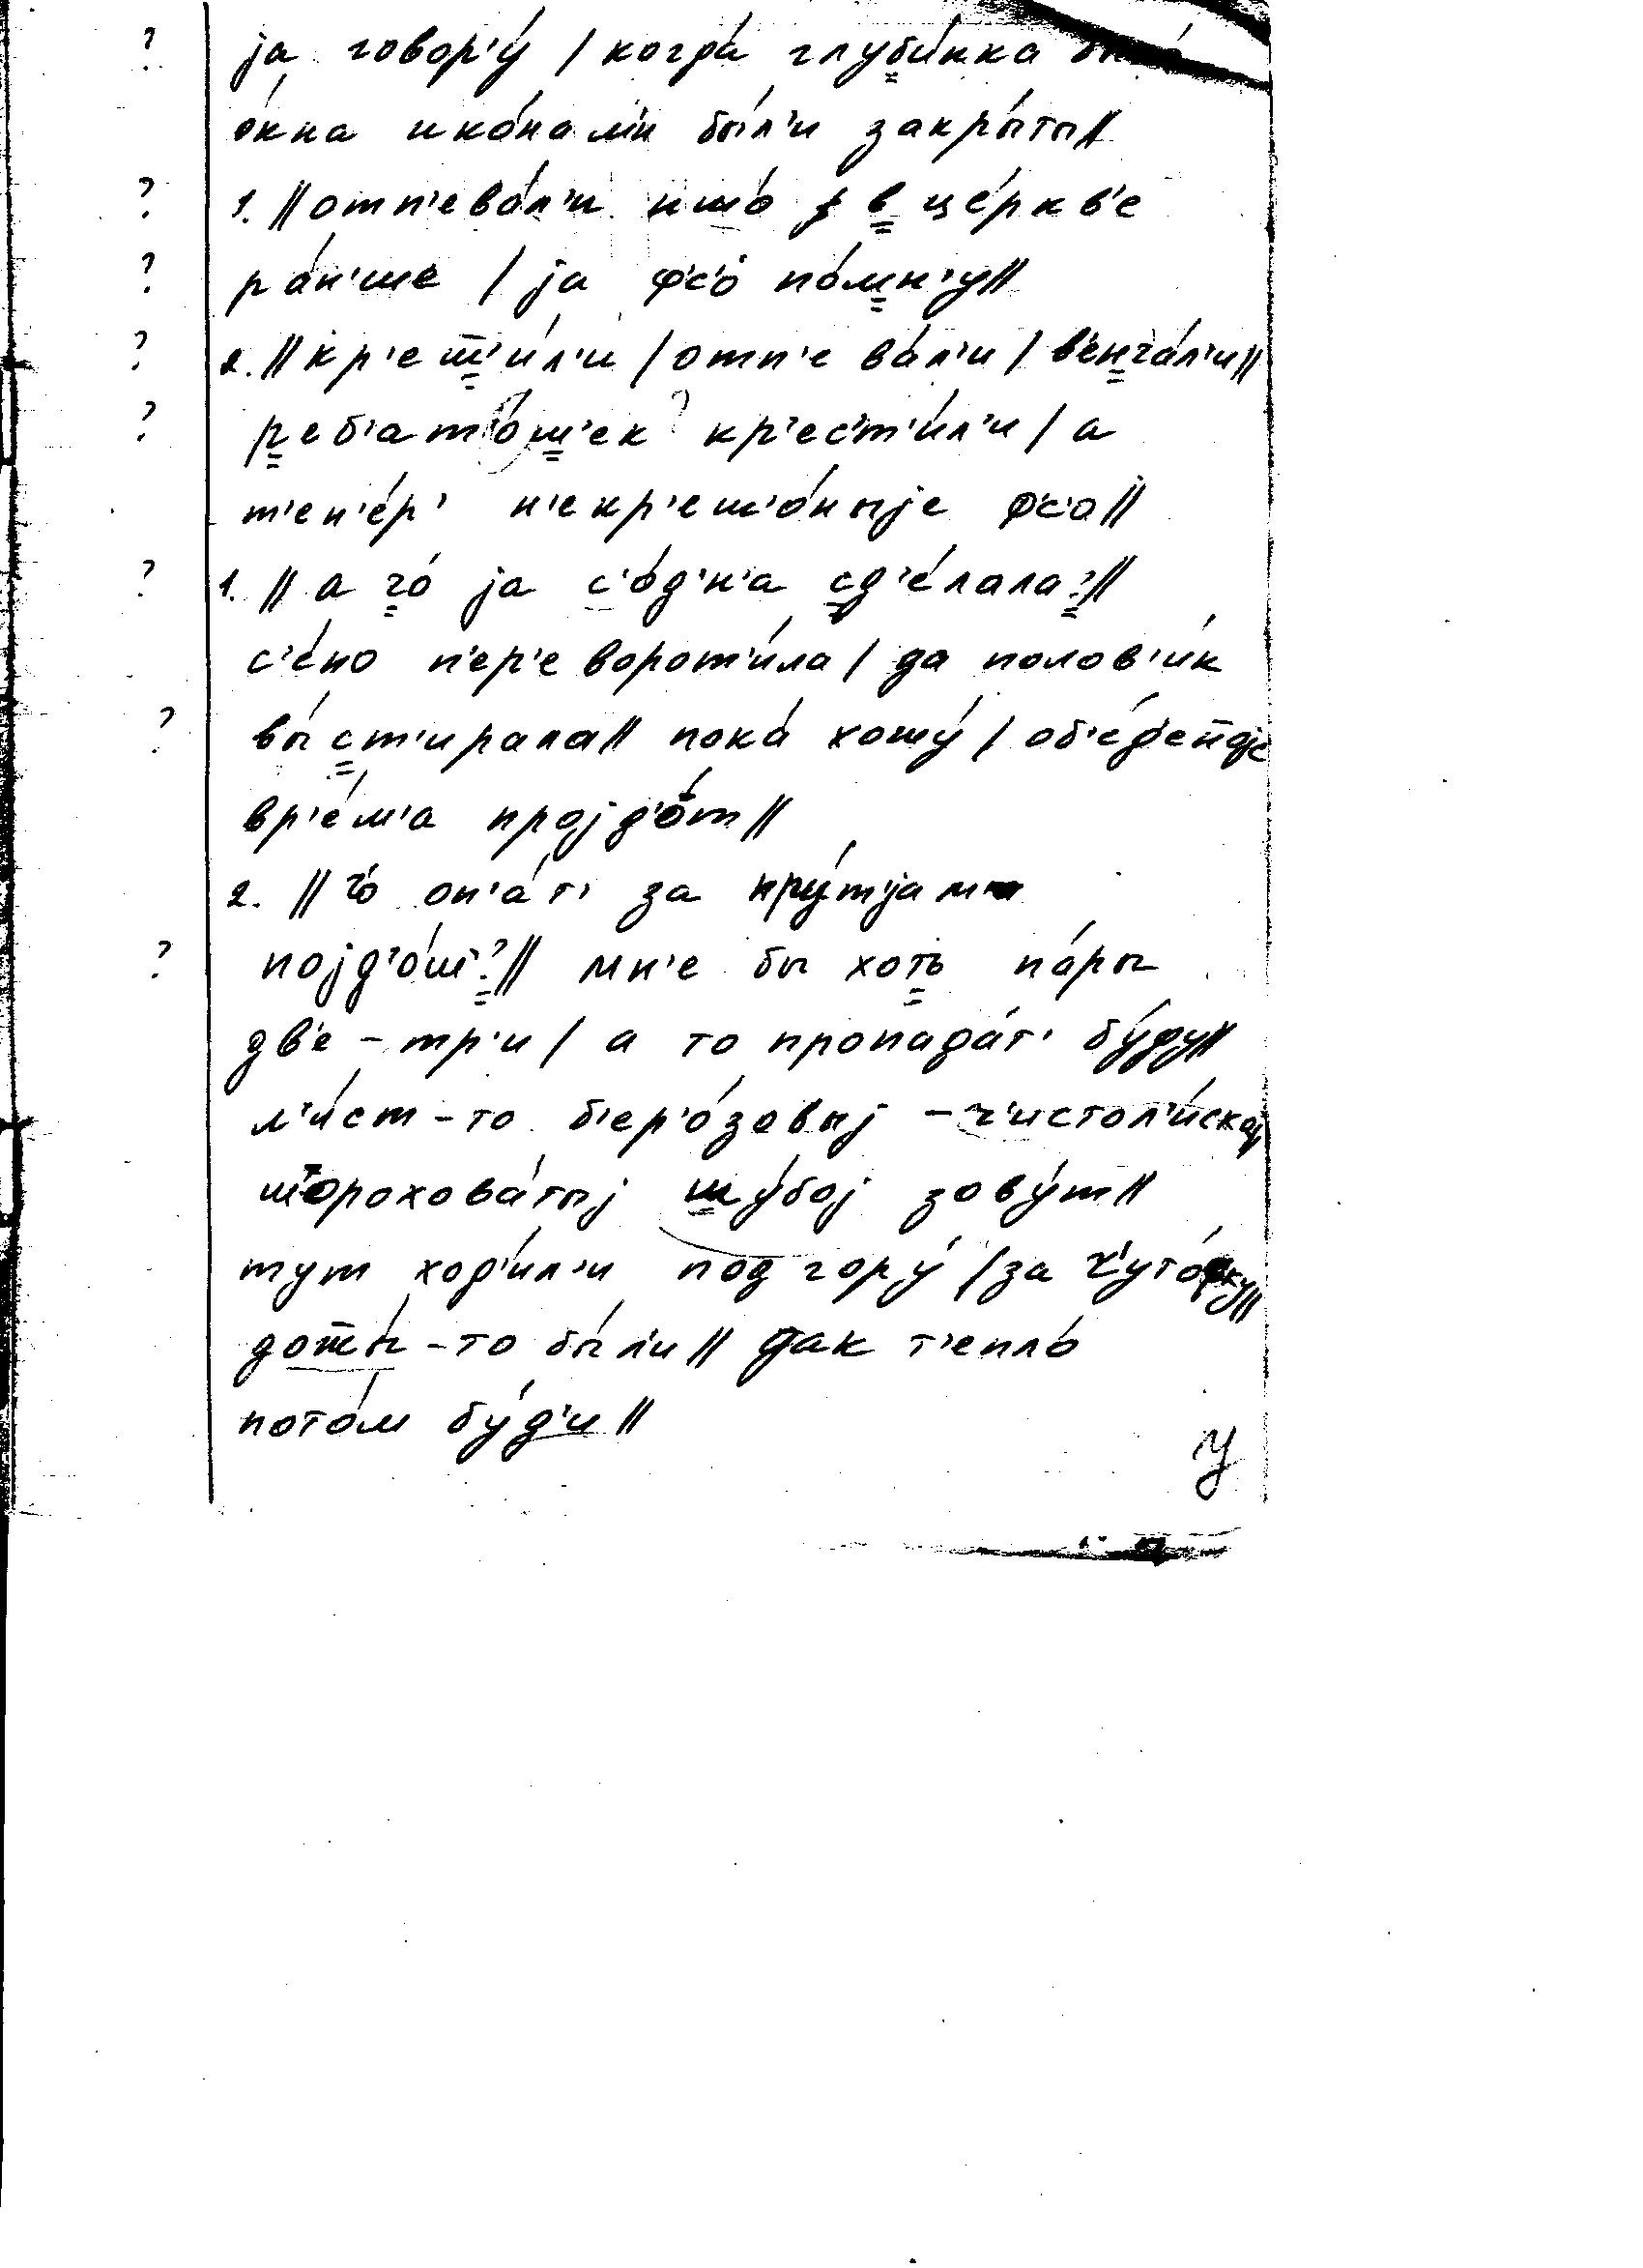 ? ја говор'у́ / когда́ глуби́нка
о́кна ико́нам'и бы́л'и закры́ты//
? 1. //отп'ева́л'и ишо́ в це́ркв'е
? ра́н'ше / ја ф'с'о́ по́мн'у//
? 2. //кр'ест'и́л'и / отп'ева́л'и / в'енча́л'и//
? реб'ат'о́ш'ек ? кр'ес'т'и́л'и / а
т'еп'е́р' н'екр'еш'о́ныје ф'с'о//
? 1. // а чо́ ја с'о́д'н'а сд'е́лала?//
с'е́но п'ер'еворот'и́ла / да полов'и́к
? вы́ст'ирала// пока́ хожу́ /
вр'е́м'а пројд'о́т//
2. // чо оп'а́т' за пру́т'јам'и
? појд'о́ш?// мн'е бы хоть па́ры
дв'е – тр'и / а то пропада́т' бу́ду//
л'и́ст – то б'ер'о́зовыј – ч'истол'и́ској
шорохова́тыј шу́бој зову́т//
тут ход'ил'и под гору́ / за
доты́ – то бы́л'и// дак т'епло́
пото́м бу́д'и//
У